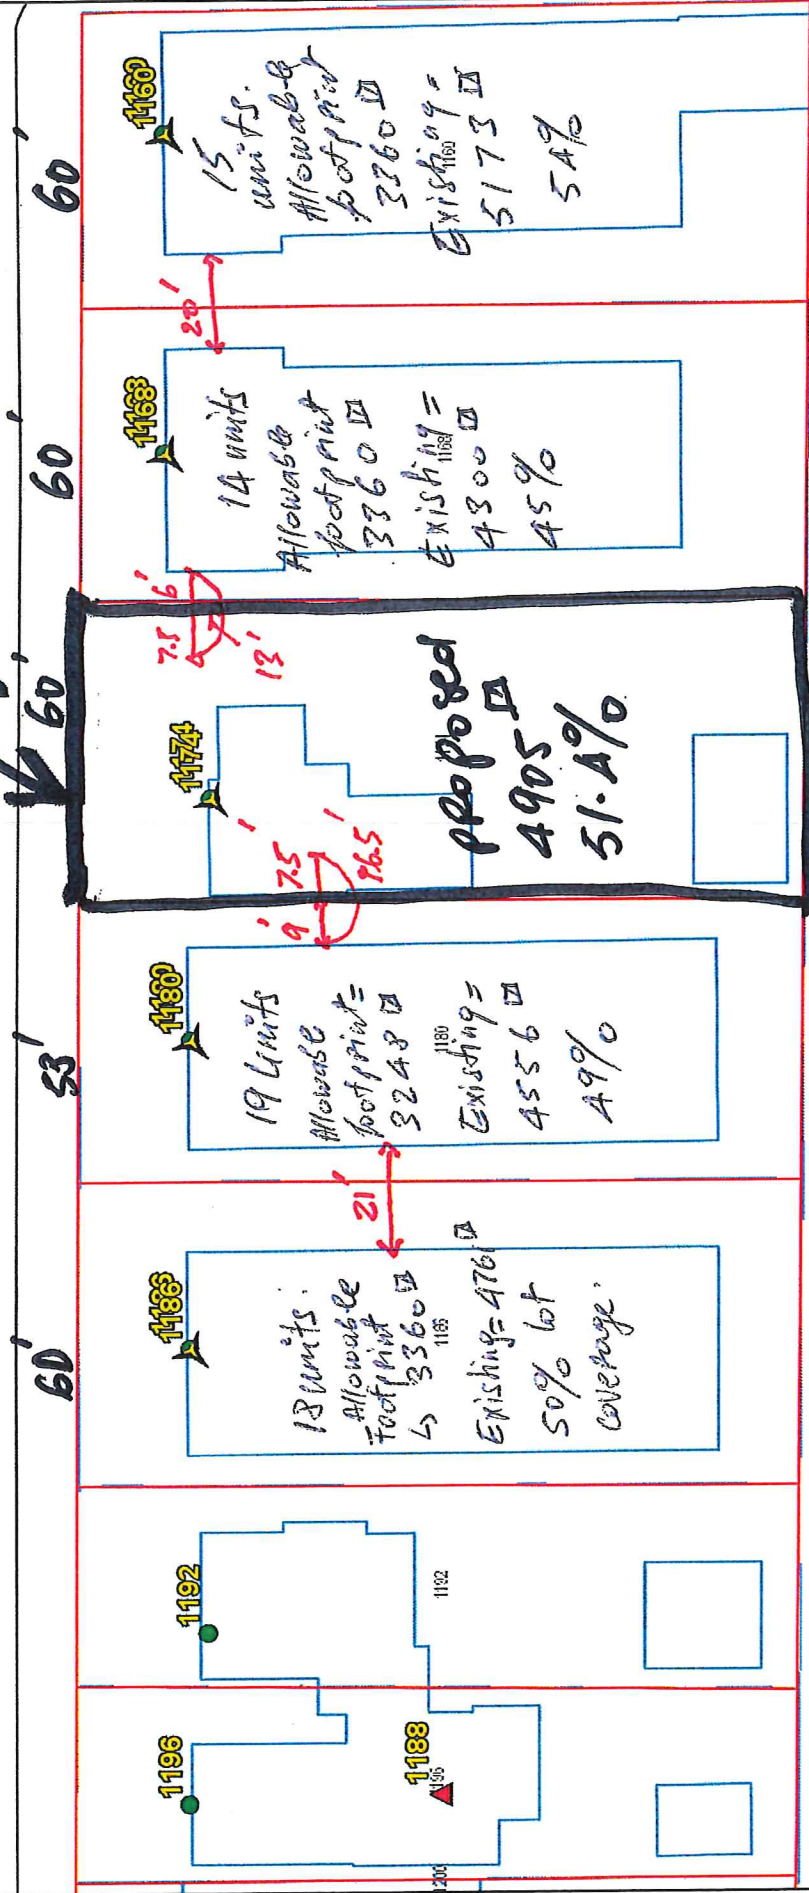 60'
60'
60'
53'
60'
1160
15
units.
Allowable
footprint
3360
Existing =
1160
5173
54%
20'
1168
14 units
Allowable
footprint
3360
Existing =
1168
4300
45%
7.5' 6'
13'
1174
PROPOSED
4905
51.4%
9' 7.5'
16.5'
1180
19 Units
Allowase
footprint =
3248
1180
Existing =
4556
49%
21'
1186
18 units.
Allowable
Footprint
3360
1186
Existing = 4761
50% lot
coverage.
1192
1192
1196
1188
1196
1200